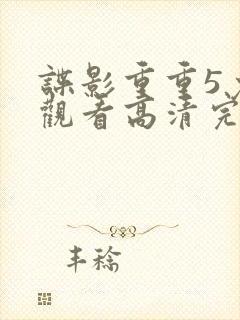 諜影重重5
觀看高清完
丰稔